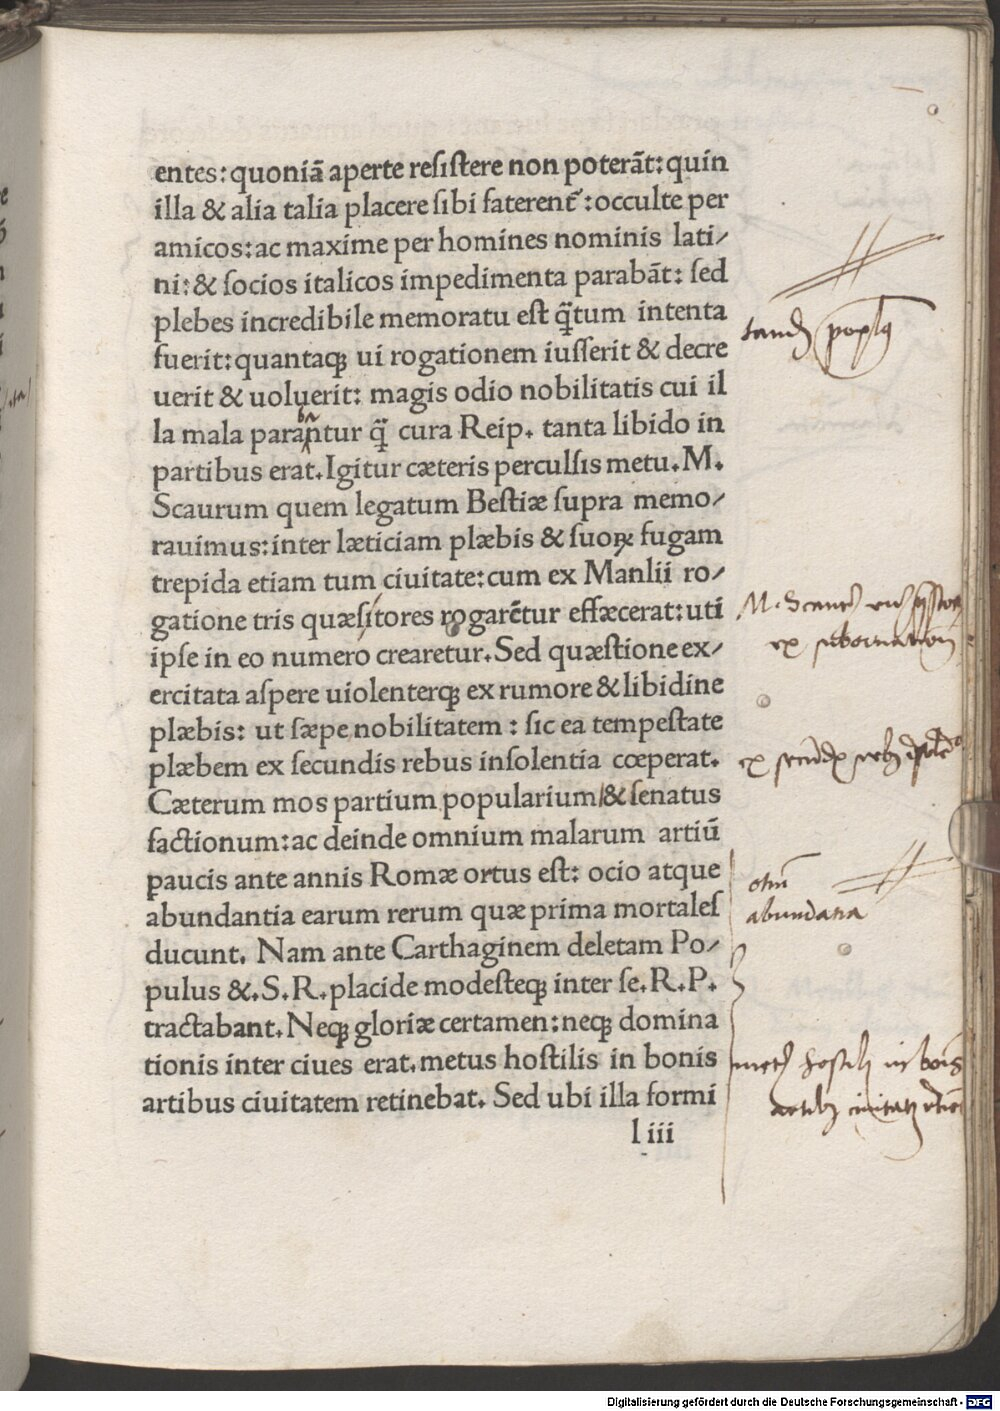 entes: quoniā aperte resistere non poterāt: quin
illa & alia talia placere sibi faterent᷑: occulte per
amicos: ac maxime per homines nominis lati/
ni: & socios italicos impedimenta parabāt: sed
plebes incredibile memoratu est q̄tum intenta
fuerit: quantaqꝫ ui rogationem iusserit & decre
uerit & uoluerit: magis odio nobilitatis cui il
la mala parantur q̄ cura Reip. tanta libido in
ba
partibus erat. Igitur cæteris perculsis metu. M.
Scaurum quem legatum Bestiæ supra memo/
rauimus: inter læticiam plæbis & suoꝝ fugam
trepida etiam tum ciuitate: cum ex Manlii ro/
gatione tris quæsitores rogarētur effæcerat: uti
ipse in eo numero crearetur. Sed quæstione ex/
ercitata aspere uiolenterqꝫ ex rumore & libidine
plæbis: ut sæpe nobilitatem: sic ea tempestate
plæbem ex secundis rebus insolentia cœperat.
Cæterum mos partium popularium/& senatus
factionum: ac deinde omnium malarum artiū
paucis ante annis Romæ ortus est: ocio atque
abundantia earum rerum quæ prima mortales
ducunt. Nam ante Carthaginem deletam Po/
pulus &. S. R. placide modesteqꝫ inter se. R. P.
tractabant. Neqꝫ gloriæ certamen: neqꝫ domina
tionis inter ciues erat. metus hostilis in bonis
artibus ciuitatem retinebat. Sed ubi illa formi
l iii
otiū
abundātia
Digitalisierung gefördert durch die Deutsche Forschungsgemeinschaft - DFG